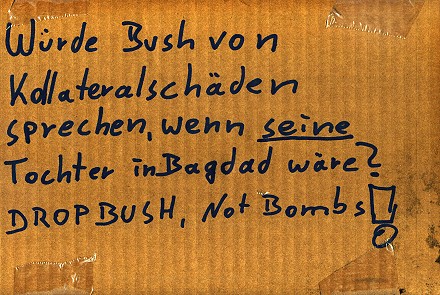 Würde Bush von
Kollateralschäden
sprechen, wenn seine
Tochter in Bagdad wäre?
DROP BUSH, Not Bombs!